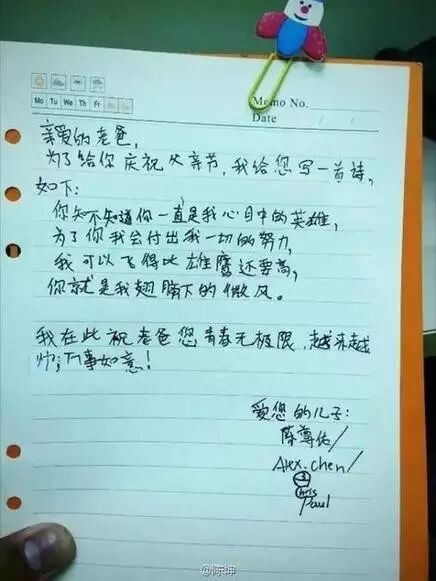 Mo Tu We Th Fr Sa Su
Memo No.
Date / /
亲爱的老爸,
为了给你庆祝父亲节,我给您写一首诗,
如下:
你知不知道你一直是我心目中的英雄,
为了你我会付出我一切的努力,
我可以飞得比雄鹰还要高,
你就是我翅膀下的微风。
我在此祝老爸您青春无极限,越来越
帅;万事如意!
爱您的儿子:
陈尊佑/
Alex.chen/
Chris
Paul
@陈坤